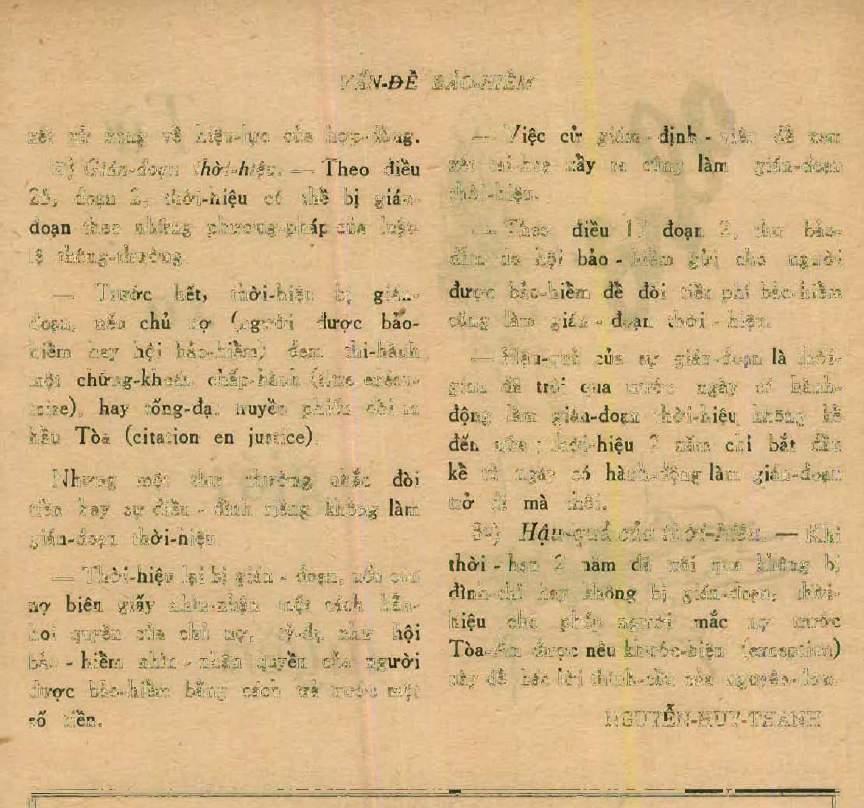 VẤN-ĐỀ BẢO-HIỂM
xét xử xong về hiệu-lực của hợp-đồng.
Gián-đoạn thời-hiệu. — Theo điều
25, đoạn 2, thời-hiệu có thể bị gián-
đoạn theo những phương-pháp của luật-
lệ thông-thường.
— Trước hết, thời-hiệu bị gián-
đoạn, nếu chủ nợ (người được bảo-
hiểm hay hội bảo-hiểm) đem thi-hành
một chứng-khoán chấp-hành (titre exécu-
toire), hay tống-đạt huyền phiếu đòi ra
hầu Tòa (citation en justice).
Nhưng một thư thường nhắc đòi
tiền hay sự điều - đình riêng không làm
gián-đoạn thời-hiệu.
— Thời-hiệu lại bị gián - đoạn, nếu con
nợ biên giấy nhìn-nhận một cách hẳn-
hoi quyền của chủ nợ, tỷ-dụ như hội
bảo - hiểm nhìn - nhận quyền của người
được bảo-hiểm bằng cách trả trước một
số tiền.
— Việc cử giám - định - viên để xem
xét tai-nạn xẩy ra cũng làm gián-đoạn
thời-hiệu.
— Theo điều 17 đoạn 2, thư bảo-
đảm do hội bảo - hiểm gửi cho người
được bảo-hiểm để đòi tiền phí bảo-hiểm
cũng làm gián - đoạn thời - hiệu.
— Hậu-quả của sự gián-đoạn là thời-
gian đã trôi qua trước ngày có hành-
động làm gián-đoạn thời-hiệu không kể
đến nữa ; thời-hiệu 2 năm chỉ bắt đầu
kể từ ngày có hành-động làm gián-đoạn
trở đi mà thôi.
3º) Hậu-quả của thời-hiệu. — Khi
thời - hạn 2 năm đã trôi qua không bị
đình-chỉ hay không bị gián-đoạn, thời-
hiệu cho phép người mắc nợ trước
Tòa-Án được nêu khước-biện (exception)
này để bác lời thỉnh-cầu của nguyên-đơn.
NGUYỄN-HUY-THANH